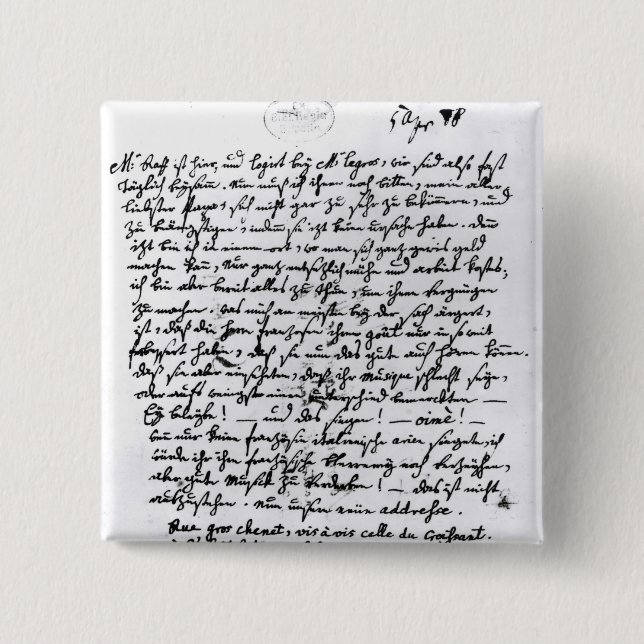 5 Apr 78
M:r Raff ist hier, und logirt bey M:r Legros, wir sind also fast
täglich beysamm. Nun muß ich ihnen noch bitten, mein aller
liebster Papa, sich nicht gar zu sehr zu bekümmern, und
zu beängstigen, indemm sie izt keine ursache haben. denn
izt bin ich in einem ort, wo man sich ganz gewis geld
machen kann, Nur ganz entsezlich mühe und arbeit kostets;
ich bin aber bereit alles zu thun, um ihnen vergnügen
zu machen. was mich am meisten bey der sach ärgert,
ist, daß die herrn franzosen ihren goût nur in so weit
verbessert haben, daß sie nun das gute auch hören können.
daß sie aber einseheten, daß ihr Musique schlecht seye,
oder aufs wenigste einen unterschied bemerckten —
Ey beleybe! — und das singen! — oimè! —
wenn nur keine französin italienische arien siengete, ich
würde ihr ihre französische Plererey noch verzeyhen,
aber gute Musick zu verderben! — das ist nicht
auszustehen. Nun unsere neüe addresse.
Rue gros chenet, vis à vis celle du croissant.